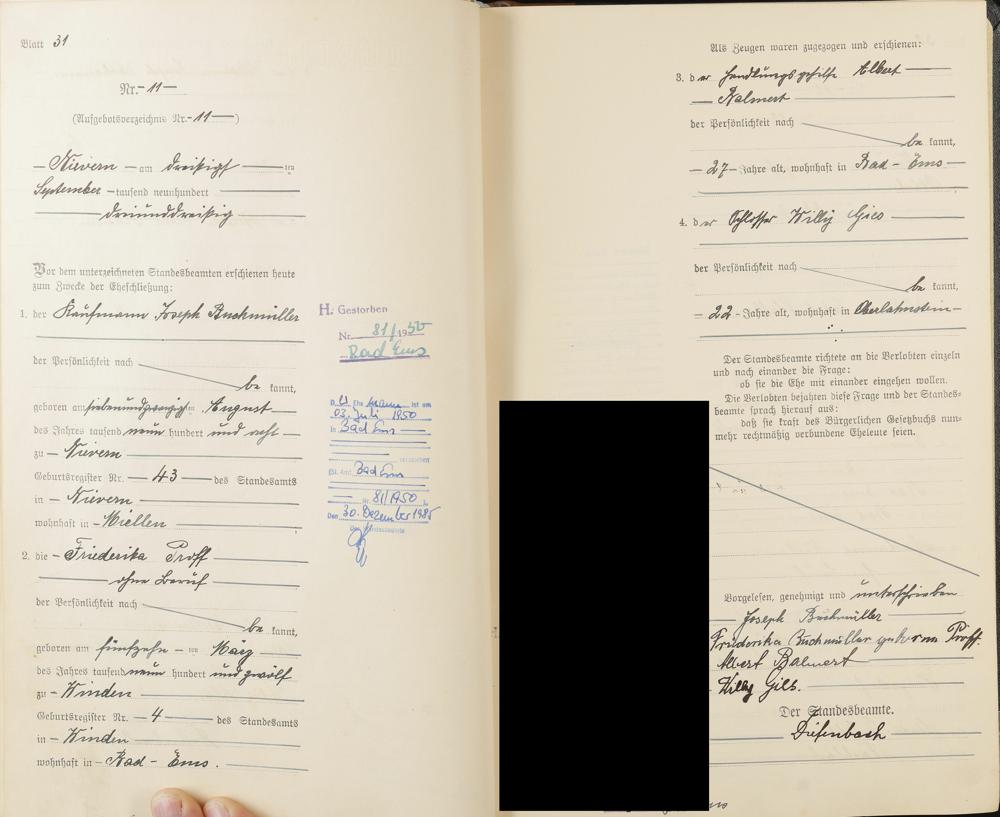 Blatt 31
Nr. - 11 -
(Aufgebotsverzeichnis Nr. - 11 - )
- Nievern - am dreißigs ten
September - tausend neunhundert
dreiunddreißig
Vor dem unterzeichneten Standesbeamten erschienen heute
zum Zwecke der Eheschließung:
1. der Kaufmann Joseph Buchmüller
der Persönlichkeit nach
be kannt,
geboren am siebenundzwanzigsten August
des Jahres tausend neun hundert und acht
zu - Nievern
Geburtsregister Nr. - 43 - des Standesamts
in - Nievern
wohnhaft in - Miellen
2. die - Friederika Proff
ohne Beruf
der Persönlichkeit nach
be kannt,
geboren am fünfzehn - ten März
des Jahres tausend neun hundert und zwölf
zu - Winden
Geburtsregister Nr. - 4 - des Standesamts
in - Winden
wohnhaft in - Bad - Ems.
H. Gestorben
Nr. 81/1950
Bad Ems
D. Ehemann ist am
03. Juli 1950
in Bad Ems
verstorben
(St. Amt Bad Ems
Nr. 81/1950
Den 30. Dezember 1985
Als Zeugen waren zugezogen und erschienen:
3. der Handlungsgehilfe Albert
- Balmert
der Persönlichkeit nach
be kannt,
- 27 - Jahre alt, wohnhaft in Bad - Ems
4. der Schlosser Willy Gils
der Persönlichkeit nach
be kannt,
- 22 - Jahre alt, wohnhaft in Oberlahnstein -
Der Standesbeamte richtete an die Verlobten einzeln
und nach einander die Frage:
ob sie die Ehe mit einander eingehen wollen.
Die Verlobten bejahten diese Frage und der Standes-
beamte sprach hierauf aus:
daß sie kraft des Bürgerlichen Gesetzbuchs nun-
mehr rechtmäßig verbundene Eheleute seien.
Vorgelesen, genehmigt und unterschrieben
Joseph Buchmüller
Friederika Buchmüller geborene Proff.
Albert Balmert
Willy Gils.
Der Standesbeamte.
Diefenbach